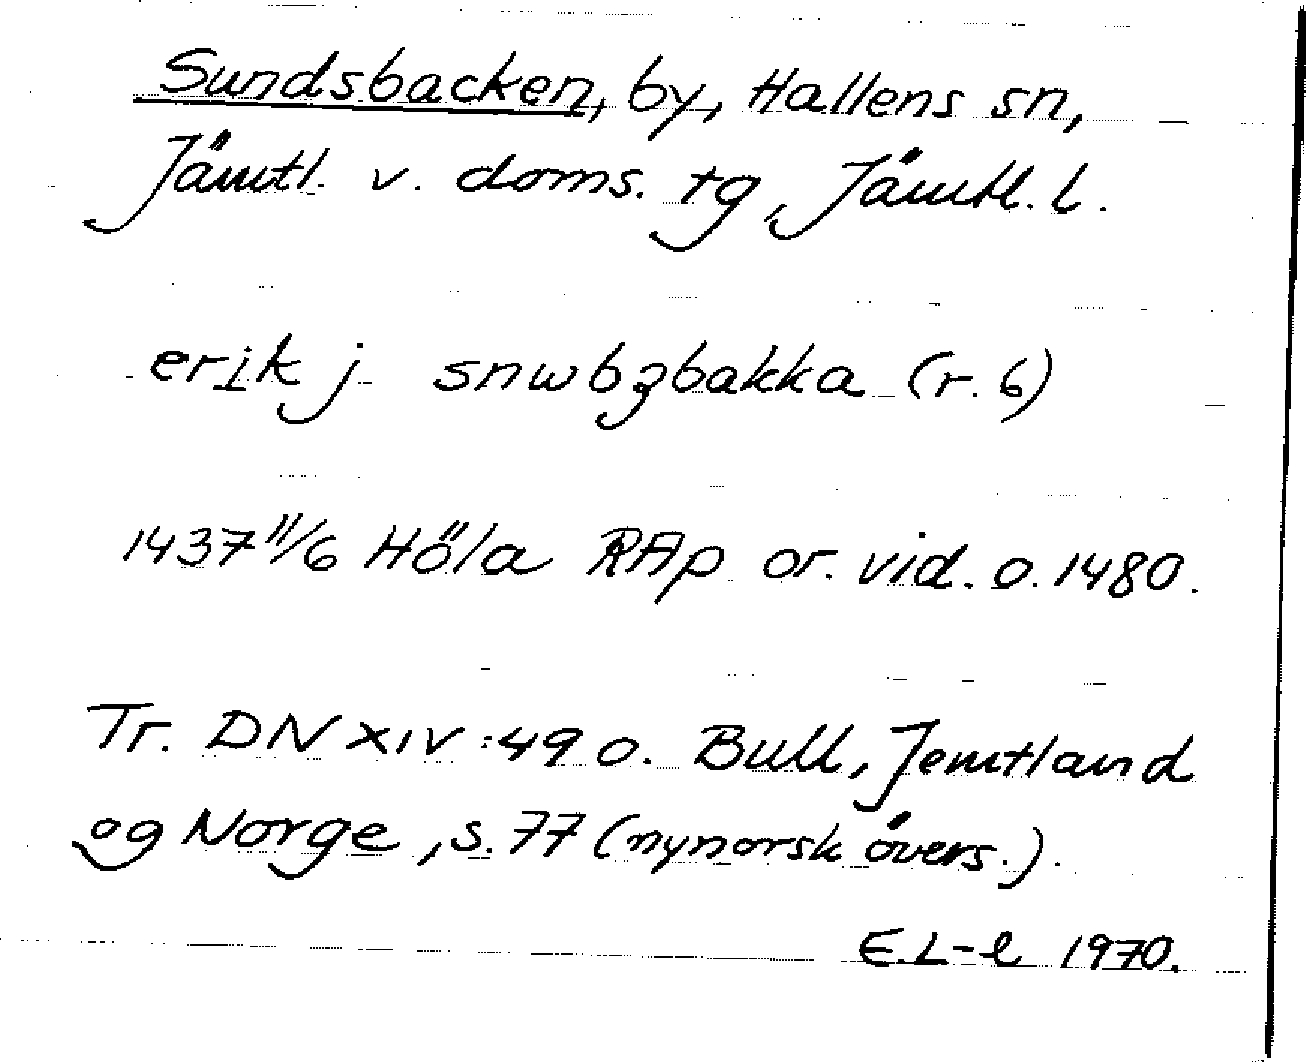 Sundsbacken, by, Hallens sn,
Jämtl. v. doms. tg, Jämtl. l.
erik j snwbzbakka (r. 6)
1437 11/6 Höla RAp or. vid. o. 1480.
Tr. DN XIV:49 o. Bull, Jemtland
og Norge, s. 77 (nynorsk övers.).
E.L-l 1970.